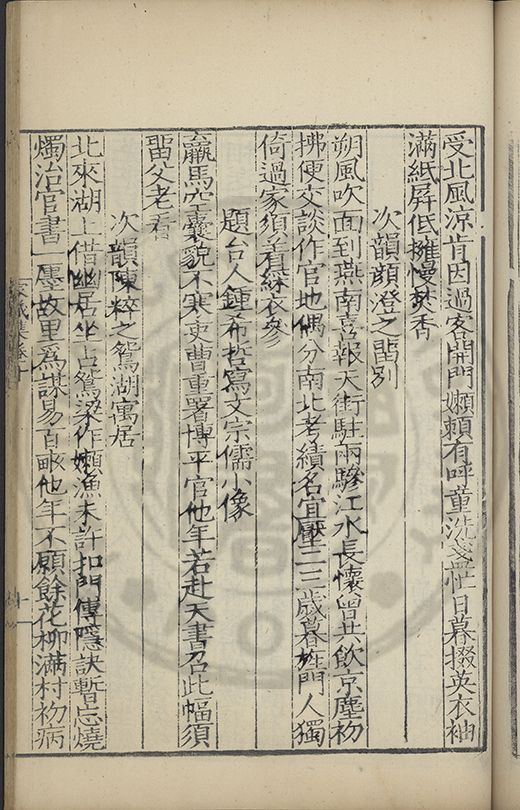 受北風涼肯因過客開門嬾賴有呼童洗盞忙日暮掇英衣袖
滿紙屏低擁慢焚香
次韻顔澄之留別
朔風吹面到燕南喜報天街駐兩驂江水長懷曾共飲京塵初
拂便交談作官地偶分南北考績名宜壓二三歲暮旌門人獨
倚過家須着綵衣參
題台人鍾希哲寫文宗儒小像
羸馬空囊貌不寒吏曹重署博平官他年若赴天書召此幅須
留父老看
次韻陳粹之鴛湖寓居
北來湖上借幽居坐占鴛梁作嬾漁未許扣門傳隱訣暫忘燒
燭治官書一廛故里爲謀易百畝他年不願餘花柳滿村初病